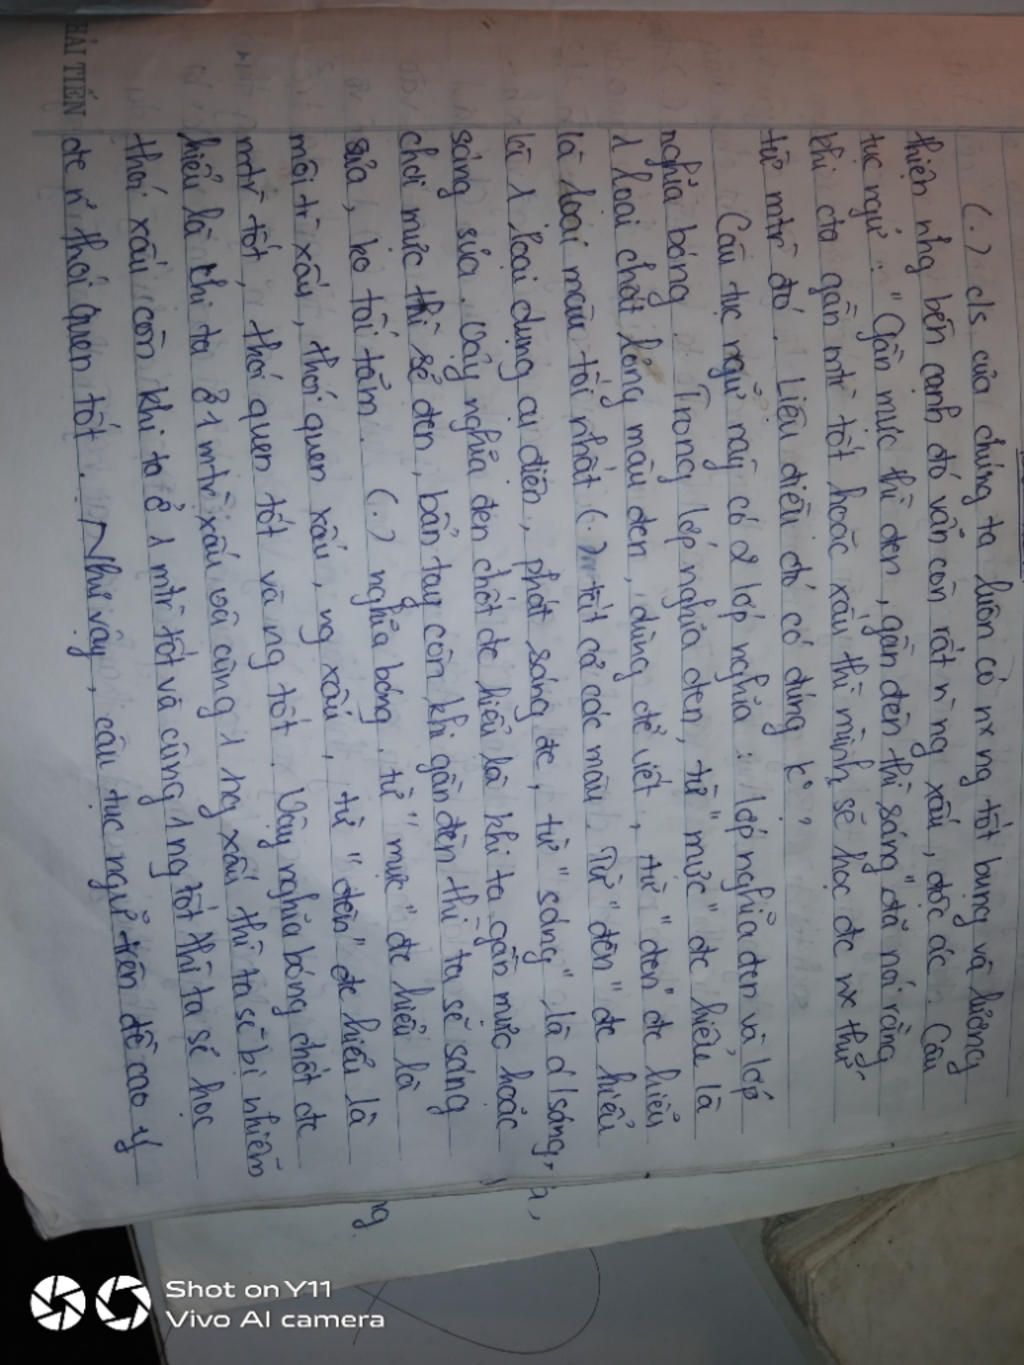 (.) cls của chúng ta luôn có nx ng tốt bụng và lương
thiện nhg bên cạnh đó vẫn còn rất n ng xấu, độc ác. Câu
tục ngữ: "Gần mực thì đen, gần đèn thì sáng" đã nói rằng
khi cta gần mtr tốt hoặc xấu thì mình sẽ học đc nx thứ
từ mtr đó. Liệu điều đó có đúng k°?
Câu tục ngữ này có 2 lớp nghĩa: lớp nghĩa đen và lớp
nghĩa bóng. Trong lớp nghĩa đen, từ "mực" đc hiểu là
1 loại chất lỏng màu đen, dùng để viết, từ "đen" đc hiểu
là loại màu tối nhất (.) tất cả các màu. Từ "đèn" đc hiểu
là 1 loại dụng cụ điện, phát sáng đc, từ "sáng" là
sáng sủa. Vậy nghĩa đen chốt đc hiểu là khi ta gần mực hoặc
chơi mực thì sẽ đen, bẩn tay còn khi gần đèn thì ta sẽ sáng
sủa, ko tối tăm. (.) nghĩa bóng, từ "mực" đc hiểu là
môi tr xấu, thói quen xấu, ng xấu, từ "đèn" đc hiểu là
mtr tốt, thói quen tốt và ng tốt. Vậy nghĩa bóng chốt đc
hiểu là khi ta ở 1 mtr xấu và cùng 1 ng xấu thì ta sẽ bị nhiễm
thói xấu còn khi ta ở 1 mtr tốt và cùng 1 ng tốt thì ta sẽ học
đc n thói quen tốt. Như vậy, câu tục ngữ trên đề cao ý
HẢI TIẾN
Shot on Y11
Vivo AI camera